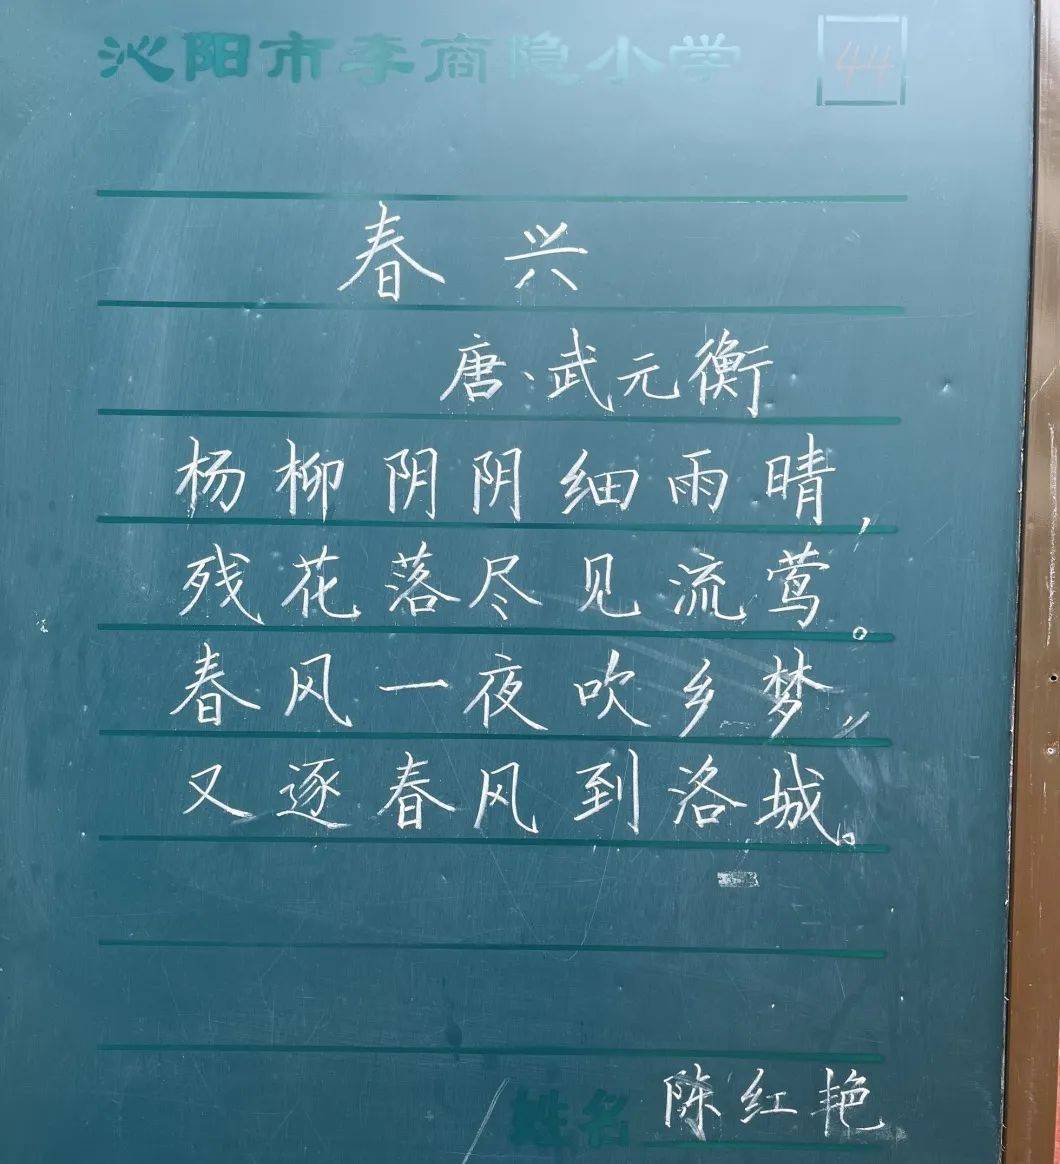 沁阳市李商隐小学 44
春兴
唐、武元衡
杨柳阴阴细雨晴，
残花落尽见流莺。
春风一夜吹乡梦，
又逐春风到洛城。
姓名 陈红艳